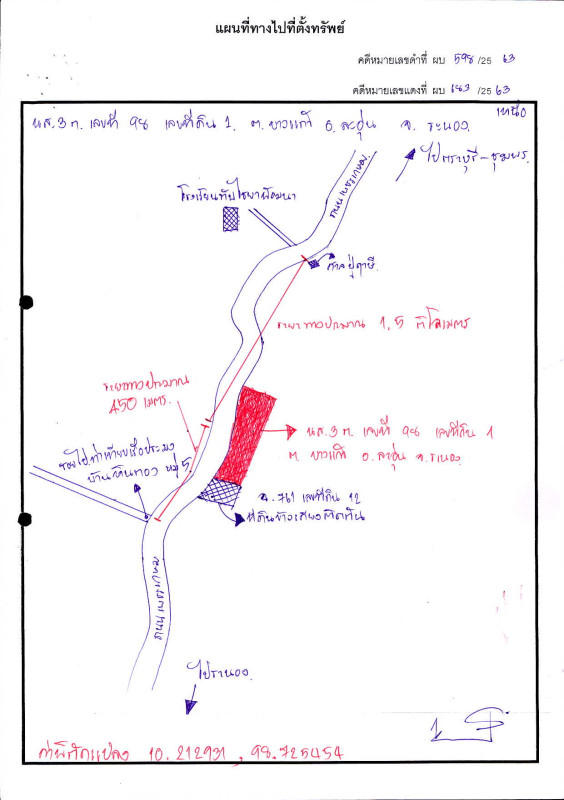 แผนที่ทางไปที่ตั้งทรัพย์
คดีหมายเลขดำที่ ผบ 598 /25 63
คดีหมายเลขแดงที่ ผบ 683 /25 63
เหนือ
นส.3 ก. เลขที่ 98 เลขที่ดิน 1. ต. บางแก้ว อ. ละอุ่น จ. ระนอง
ไปกระบุรี-ชุมพร
ถนนเพชรเกษม
โรงเรียนทับไชยาพัฒนา
ศาลปู่ฤาษี
ระยะทางประมาณ 1,5 กิโลเมตร
ระยะทางประมาณ
450 เมตร.
นส.3 ก. เลขที่ 98 เลขที่ดิน 1
ต. บางแก้ว อ. ละอุ่น จ. ระนอง
ซอยไปท่าเทียบเรือประมง
บ้านหินทอง หมู่ 5
จ. 761 เลขที่ดิน 12
ที่ดินข้างเคียงติดกัน
ถนนเพชรเกษม
ไประนอง
ค่าพิกัดแปลง 10.212931 , 98.725454